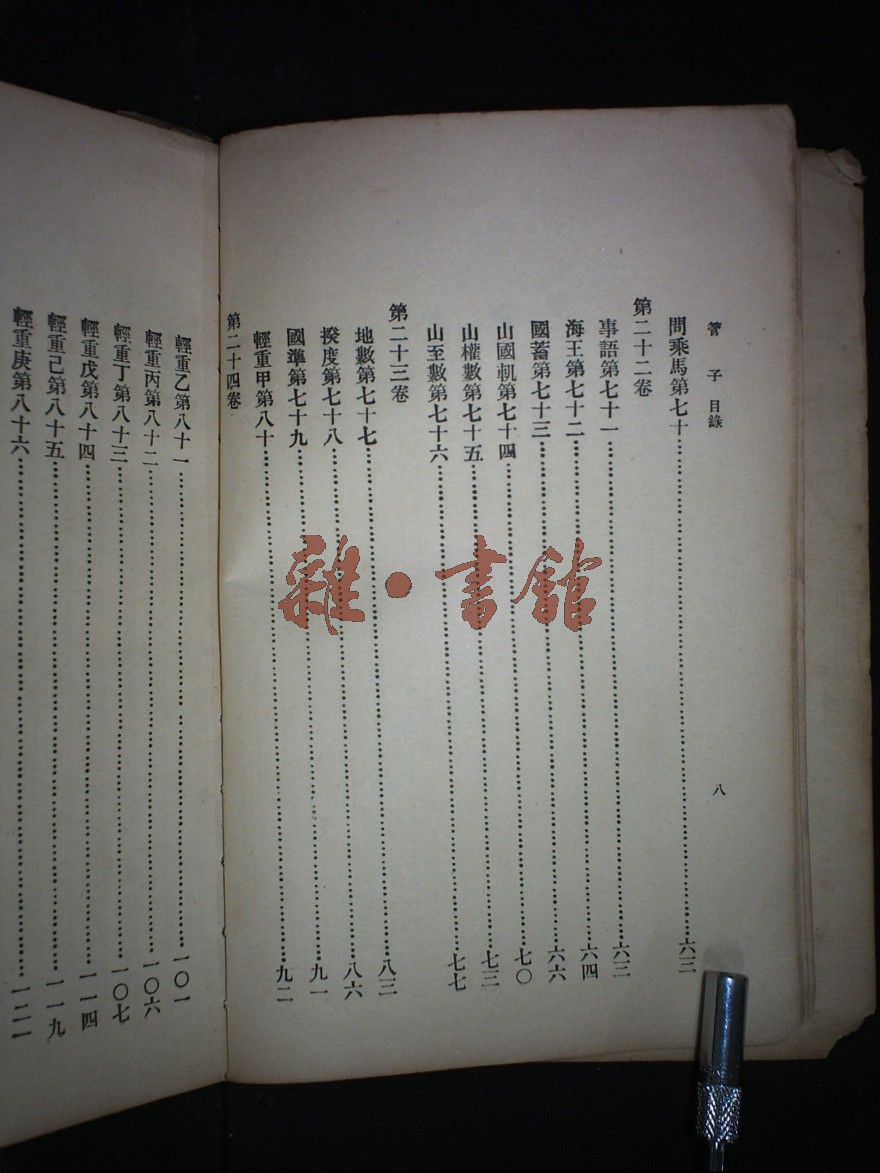 管子 目錄
八
問乘馬第七十……六三
第二十二卷
事語第七十一……六三
海王第七十二……六四
國蓄第七十三……六六
山國軌第七十四……七〇
山權數第七十五……七三
山至數第七十六……七七
第二十三卷
地數第七十七……八三
揆度第七十八……八六
國準第七十九……九一
輕重甲第八十……九二
第二十四卷
輕重乙第八十一……一〇一
輕重丙第八十二……一〇六
輕重丁第八十三……一〇七
輕重戊第八十四……一一四
輕重己第八十五……一一九
輕重庚第八十六……一二一
雜·書館